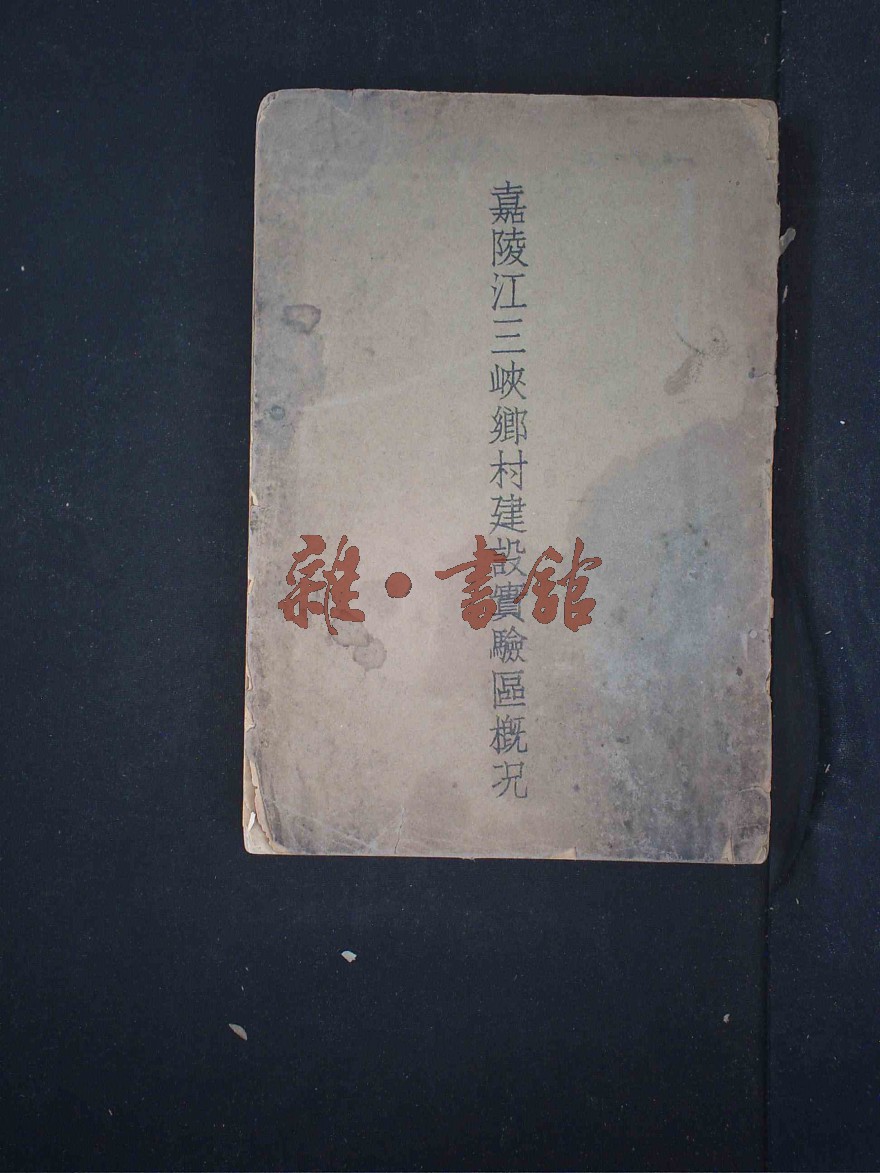 嘉陵江三峽鄉村建設實驗區概况
雜·書館